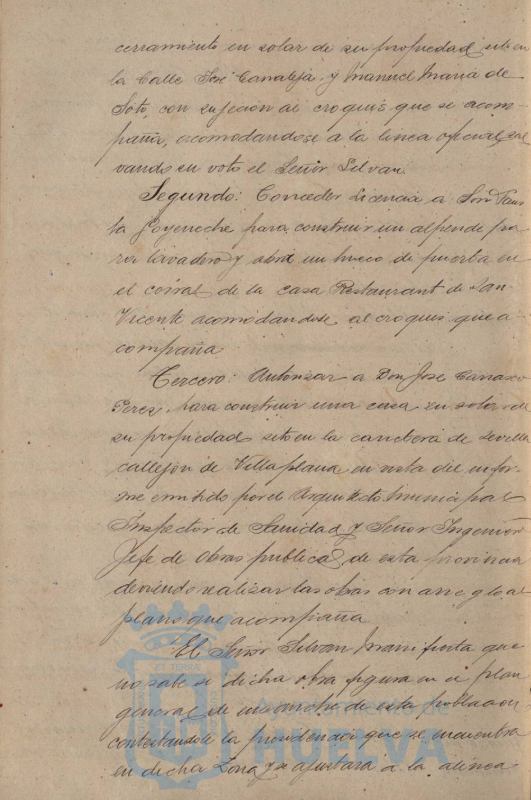 cerramiento en solar de su propiedad sito en
la Calle José Canaleja y Manuel Maria de
Soto, con sujecion al croquis que se acom
paña, acomodandose a la linea oficial, sal
vando su voto el Señor Silvan.
Segundo: Conceder Licencia a Don
Goyeneche para construir un alpende pa
ra lavadero y abrir un hueco de puerta en
el corral de la casa Restaurant de San
Vicente acomodandose al croquis que a
compaña
Tercero: Autorizar a Don José Carrasco
Perez, para construir una casa en solar de
su propiedad sito en la carretera de Sevilla
callejón de Villa plana en vista del infor
me emitido por el Arquitecto municipal
Inspector de Sanidad y Señor Ingeniero
Jefe de Obras publicas de esta provincia
deviendo realizar las obras con arreglo al
plano que acompaña
El Señor Silvan manifiesta que
no sabe si dicha obra figura en el plan
general de ensanche de esta poblacion
contestandole la presidencia que se encuentra
en dicha Zona y se ajustará a la alinea
ET TERRÆ
Ayuntamiento de
HUELVA